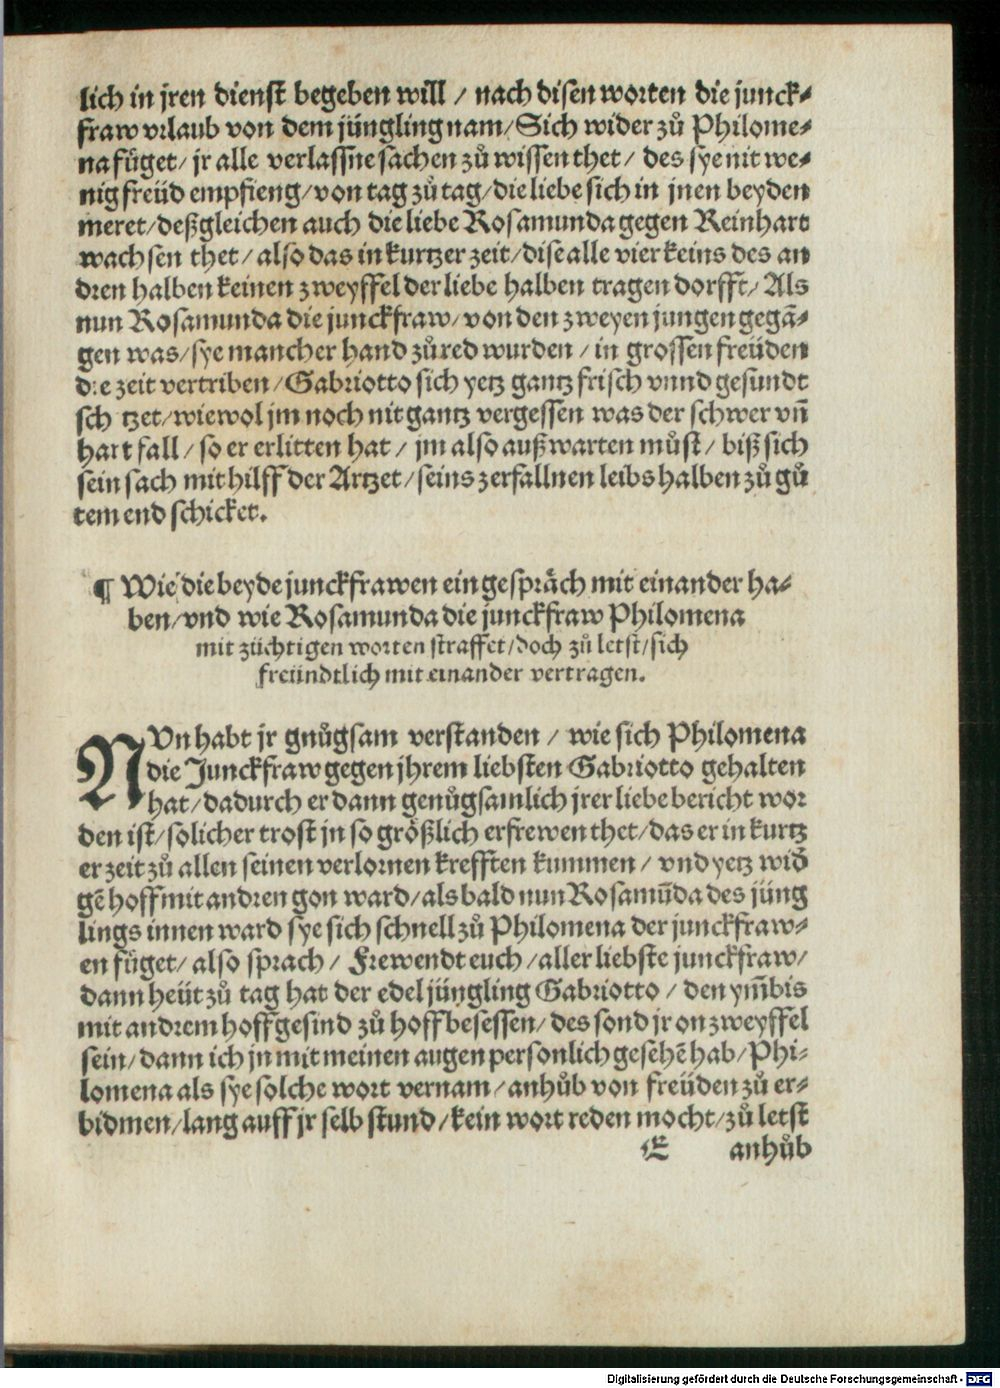 lich in jren dienst begeben will / nach disen worten die junck⸗
fraw vrlaub von dem jüngling nam/Sich wider zů Philome⸗
na füget/ jr alle verlassne sachen zů wissen thet/ des sye nit we⸗
nig freüd empfieng/von tag zů tag/die liebe sich in jnen beyden
meret/deßgleichen auch die liebe Rosamunda gegen Reinhart
wachsen thet/ also das in kurtzer zeit/dise alle vier keins des an
dren halben keinen zweyffel der liebe halben tragen dorfft/ Als
nun Rosamunda die junckfraw/von den zweyen jungen gegā⸗
gen was/sye mancher hand zů red wurden / in grossen freüden
die zeit vertriben/Gabriotto sich yetz gantz frisch vnnd gesundt
sch tzet/wiewol jm noch nit gantz vergessen was der schwer vn̄
hart fall/so er erlitten hat / jm also auß warten můst/ biß sich
sein sach mit hilff der Artzet/seins zerfallnen leibs halben zů gů
tem end schicket.
¶ Wie die beyde junckfrawen ein gespräch mit einander ha⸗
ben/vnd wie Rosamunda die junckfraw Philomena
mit züchtigen worten straffet/doch zů letst/sich
freündtlich mit einander vertragen.
NVn habt jr gnůgsam verstanden / wie sich Philomena
die Junckfraw gegen jhrem liebsten Gabriotto gehalten
hat/dadurch er dann genůgsamlich jrer liebe bericht wor
den ist/solicher trost jn so größlich erfrewen thet/das er in kurtz
er zeit zů allen seinen verlornen krefften kummen / vnd yetz wid̄
gē hoff mit andren gon ward/als bald nun Rosamūda des jüng
lings innen ward sye sich schnell zů Philomena der junckfraw⸗
en füget/ also sprach / Frewendt euch /aller liebste junckfraw/
dann heüt zů tag hat der edel jüngling Gabriotto / den ym̄bis
mit andrem hoffgesind zů hoff besessen/des sond jr on zweyffel
sein/dann ich jn mit meinen augen personlich gesehē hab/Phi⸗
lomena als sye solche wort vernam/anhůb von freüden zů er⸗
bidmen/lang auff jr selb stund/kein wort reden mocht/zů letst
E anhůb
Digitalisierung gefördert durch die Deutsche Forschungsgemeinschaft - DFG